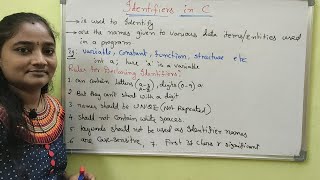 Identifiers in C
→ is used to Identify
→ are the names given to various data items/entities used
in a program
Eg: variable, Constant, function, structure etc
int a; here 'a' is a variable
Rules for Declaring Identifiers:
1 can contain letters (a-z), digits (0-9)
2 But they can't start with a digit
3 names should be UNIQE (Not Repeated)
4 should not contain white spaces.
5 keywords should not be used as Identifier names
6 are case-sensitive, 7. First 31 chars r significant